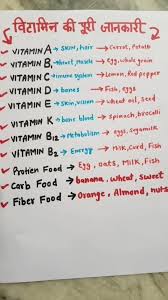 विटामिन की पूरी जानकारी
VITAMIN A → skin, hair → Carrot, Potato
VITAMIN B, → Heart, Muscle → egg, wheat Grain
VITAMIN C → immune system → Lemon, Red pepper
VITAMIN D → bones → Fish, eggs
VITAMIN E → skin, vision → wheat oil, Seed
VITAMIN K → bone blood → spinach, brocolli
VITAMIN B12 → Metabolism → eggs, soyamilk
VITAMIN B2 → Energy → Milk, Curd, Fish
Protien Food → Egg, oats, Milk, Fish
Carb Food → banana, wheat, sweet
Fiber Food → Orange, Almond, nuts